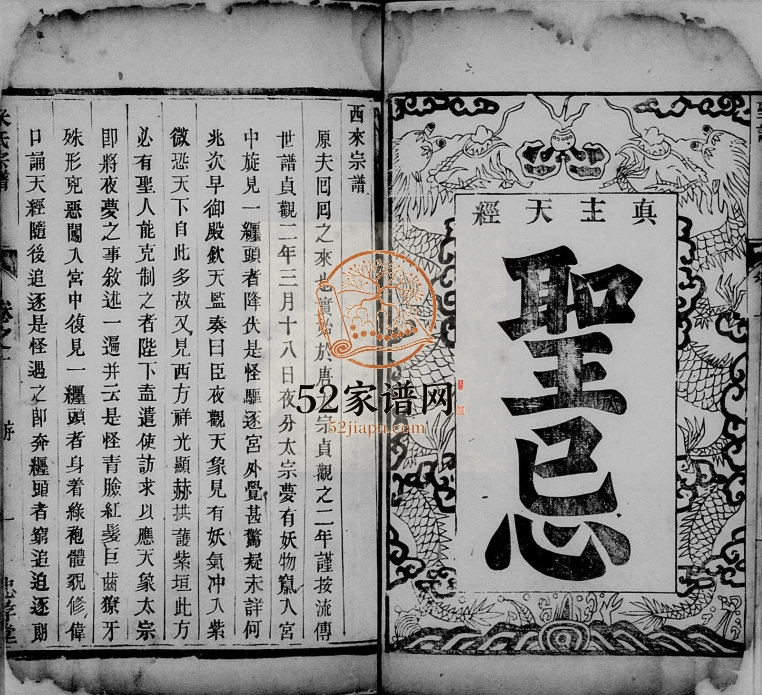 真主天經
聖忌
西來宗譜
原夫回回之來也實始於唐 宗貞觀之二年謹按流傳
世譜貞觀二年三月十八日夜分太宗夢有妖物竄入宮
中旋見一纏頭者降伏是怪驅逐宮外覺甚驚疑未詳何
兆次早御殿欽天監奏曰臣夜觀天象見有妖氣冲入紫
微恐天下自此多故又見西方祥光顯赫拱護紫垣此方
必有聖人能克制之者陛下盍遣使訪求以應天象太宗
即將夜夢之事敘述一遍并云是怪青臉紅髮巨齒獠牙
殊形兇惡闖入宮中復見一纏頭者身着綠袍體貌修偉
口誦天經隨後追逐是怪遇之即奔纏頭者窮追迫逐
氏宗譜
卷之一
一
忠孝堂
52家谱网
52jiapu.com